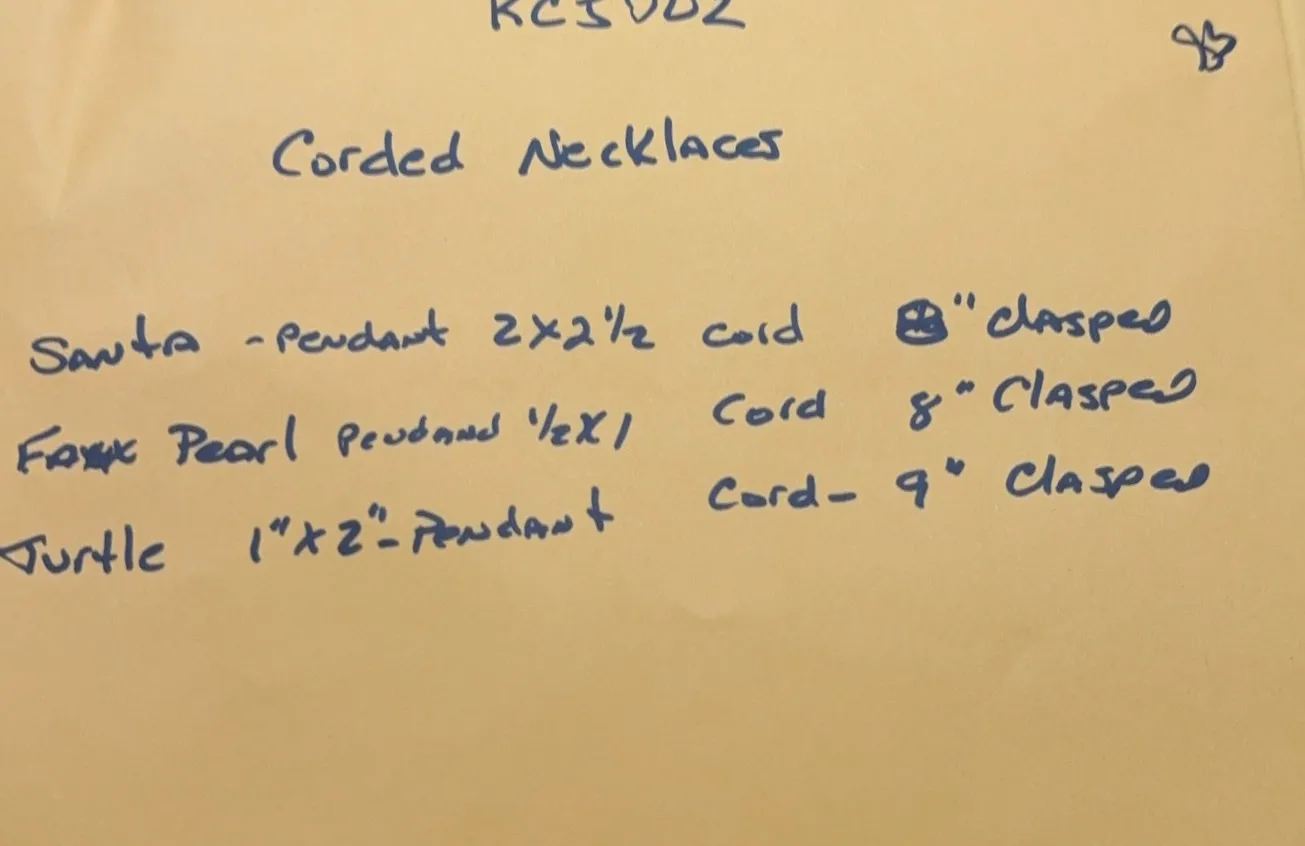 Corded Necklaces
Santa - Pendant 2x2 1/2 cord " clasped
Faux Pearl Pendand 1/2 x 1 Cord 8" Clasped
Turtle 1" x 2" - Pendant Cord - 9" Clasped